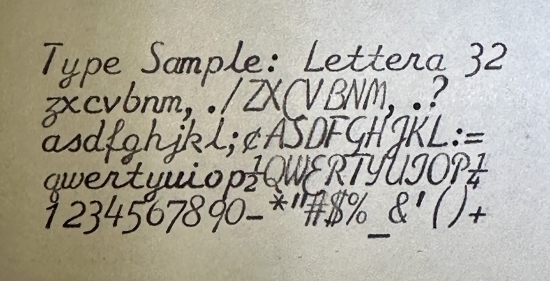 Type Sample: Lettera 32
zxcvbnm, ./ZXCVBNM, .?
asdfghjkl;¢ASDFGHJKL:=
qwertyuiop½QWERTYUIOP¼
1234567890-*"#$%_&'()+